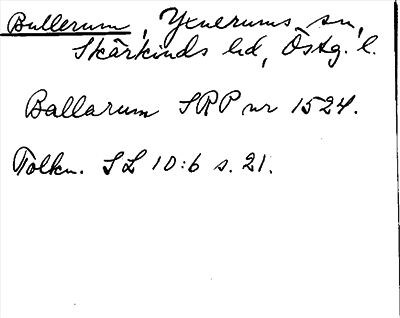 Bullerum, Yxnerums sn,
Skärkinds hd, Östg. l.
Ballarum SRP nr 1524.
Tolkn. SL 10:6 s. 21.